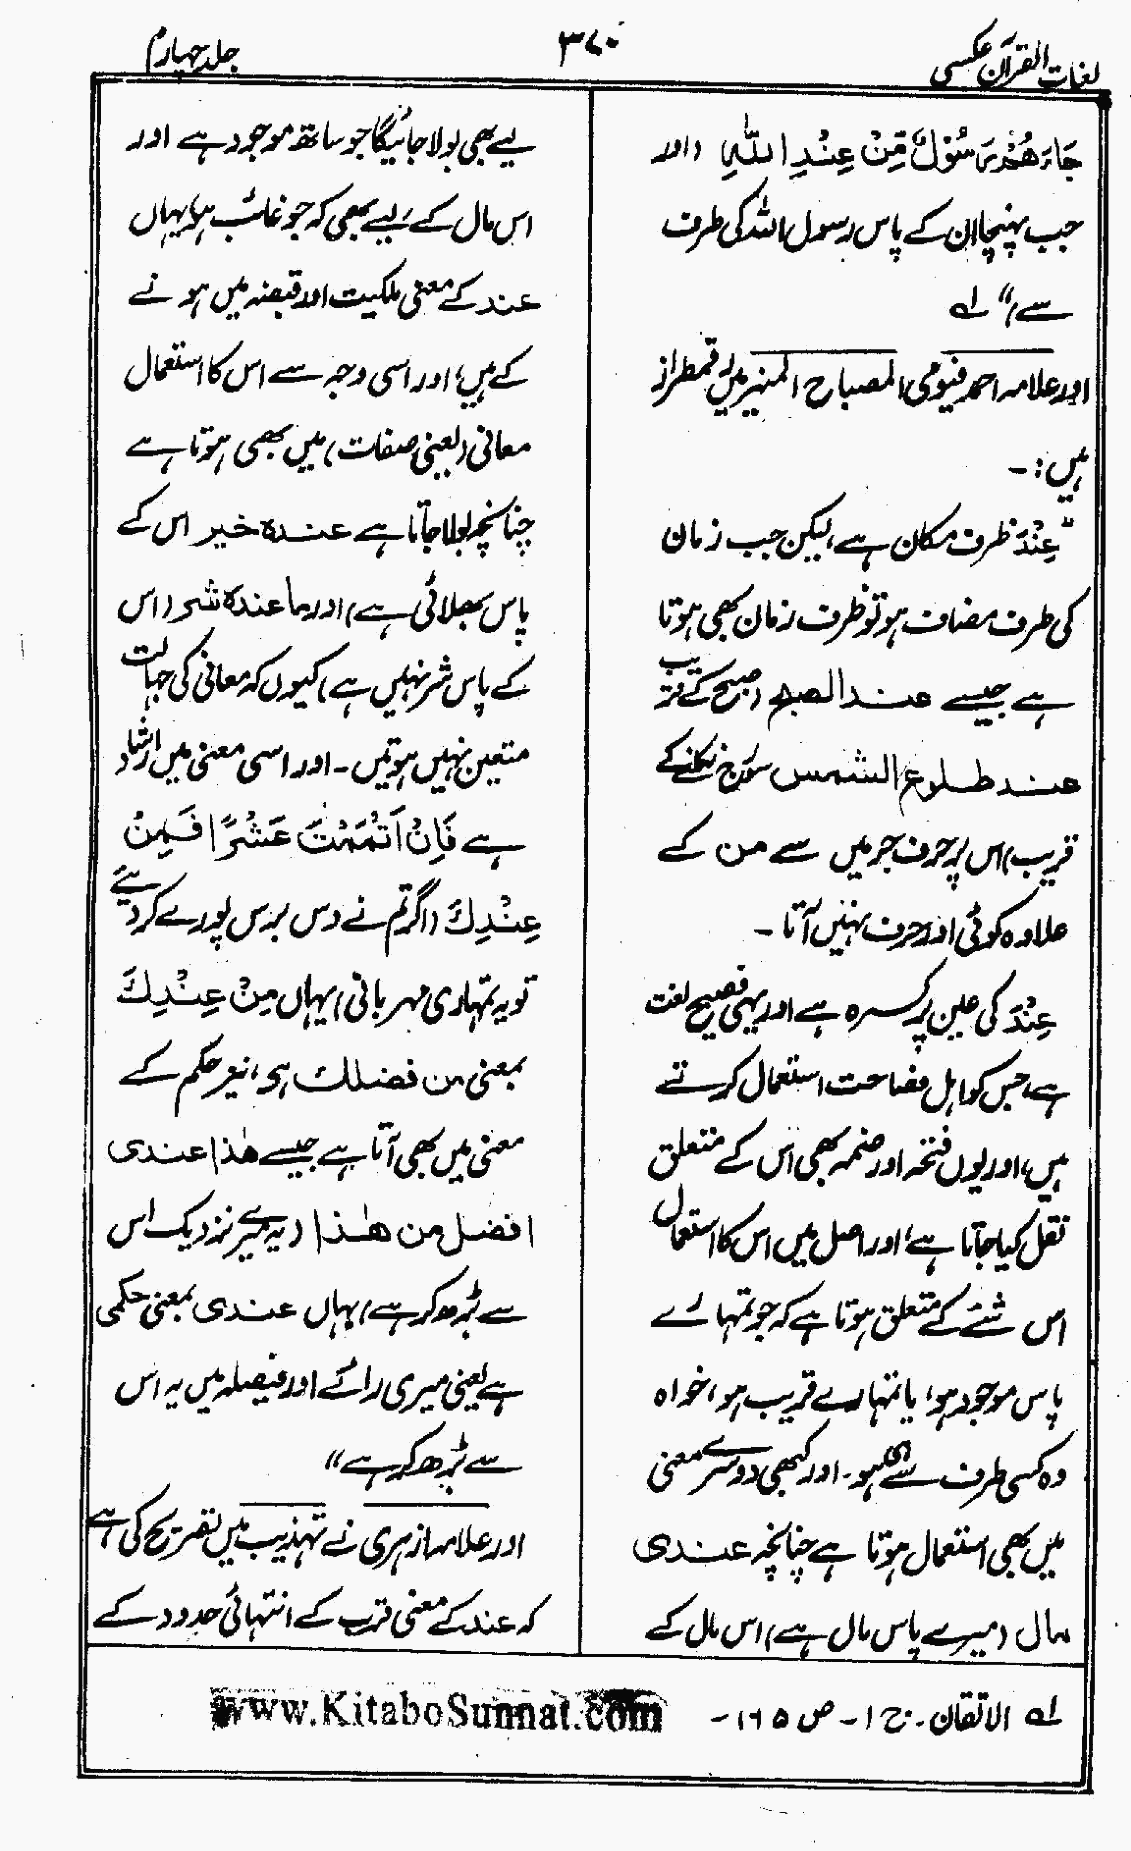 لغات القرآن عکسی
۳۷۰
جلد چہارم
جَاۤءَهُمْ رَسُوْلٌ مِّنْ عِنْدِ اللّٰهِ (اور
جب پہنچا ان کے پاس رسول اللہ کی طرف
سے)" لہ
اور علامہ احمد فیومی المصباح المنیر میں رقمطراز
ہیں :-
"عِنْدَ ظرف مکان ہے، لیکن جب زمان
کی طرف مضاف ہو تو ظرف زمان بھی ہوتا
ہے جیسے عند الصبح (صبح کے قریب
عند طلوع الشمس سورج نکلنے کے
قریب) اس پر حرف جر میں سے من کے
علاوہ کوئی اور حرف نہیں آتا -
عِنْدَ کی عین پر کسرہ ہے اور یہی فصیح لغت
ہے، جس کو اہل فصاحت استعمال کرتے
ہیں، اور یوں فتحہ اور ضمہ بھی اس کے متعلق
نقل کیا جاتا ہے؛ اور اصل میں اس کا استعمال
اس شئے کے متعلق ہوتا ہے کہ جو تمہارے
پاس موجود ہو، یا تمہارے قریب ہو، خواہ
وہ کسی طرف سے بھی ہو - اور کبھی دوسرے معنی
میں بھی استعمال ہوتا ہے چنانچہ عندی
مال (میرے پاس مال ہے) اس مال کے
لیے بھی بولا جائیگا جو ساتھ موجود ہے اور
اس مال کے لیے بھی کہ جو غائب ہو، یہاں
عند کے معنی ملکیت اور قبضہ میں ہونے
کے ہیں؛ اور اسی وجہ سے اس کا استعمال
معانی (یعنی صفات) میں بھی ہوتا ہے
چنانچہ بولا جاتا ہے عندہ خیر اس کے
پاس بھلائی ہے) اور ما عندہ شر (اس
کے پاس شر نہیں ہے) کیوں کہ معانی کی جہات
متعین نہیں ہوتیں - اور اسی معنی میں ارشاد
ہے فَاِنْ اَتْمَمْتَ عَشْرًا فَمِنْ
عِنْدِكَ (اگر تم نے دس برس پورے کر دیئے
تو یہ تمہاری مہربانی) یہاں مِنْ عِنْدِكَ
بمعنی من فضلك ہے، نیز حکم کے
معنی میں بھی آتا ہے جیسے هٰذا عندی
افضل من هٰذا (یہ میرے نزدیک اس
سے بڑھ کر ہے) یہاں عندی بمعنی حکمی
ہے یعنی میری رائے اور فیصلہ میں یہ اس
سے بڑھ کر ہے"
اور علامہ ازہری نے تہذیب میں تصریح کی ہے
کہ عند کے معنی قرب کے انتہائی حدود کے
لہ الاتقان - ج ۱ - ص ۱۶۵ -
www.KitaboSunnat.com